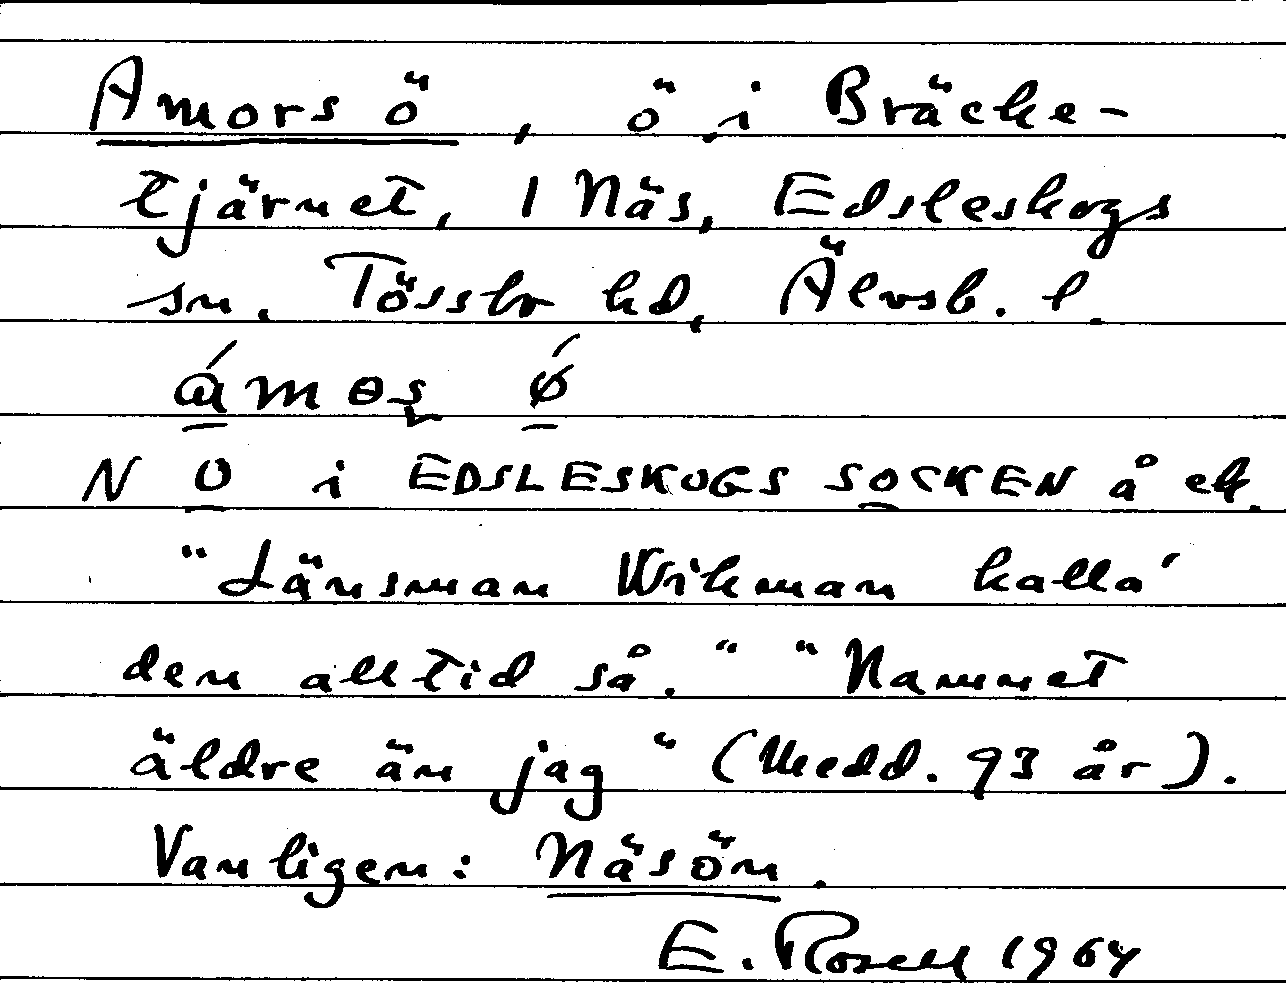 Amors ö, ö i Bräcke-
tjärnet, 1 Näs, Edsleskogs
sn. Tössbo hd, Älvsb. l.
ámꝋs ǿ
N O i EDSLESKOGS SOCKEN å ek.
"Länsman Wikman kalla'
den alltid så." "Namnet
äldre än jag" (Medd. 93 år).
Vanligen: Näsön.
E. Rosell 1964